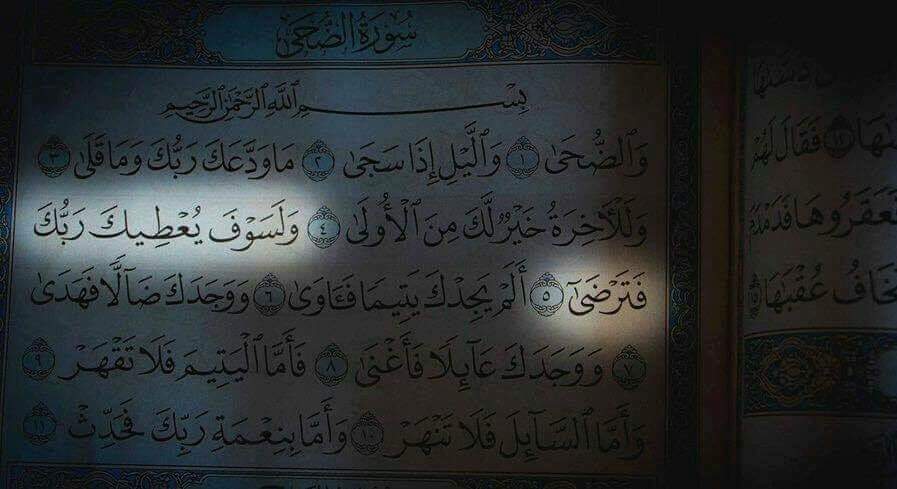 سُورَةُ الضُّحَىٰ
بِسْمِ ٱللَّهِ ٱلرَّحْمَٰنِ ٱلرَّحِيمِ
وَٱلضُّحَىٰ ١ وَٱلَّيْلِ إِذَا سَجَىٰ ٢ مَا وَدَّعَكَ رَبُّكَ وَمَا قَلَىٰ ٣
وَلَلْءَاخِرَةُ خَيْرٌ لَّكَ مِنَ ٱلْأُولَىٰ ٤ وَلَسَوْفَ يُعْطِيكَ رَبُّكَ
فَتَرْضَىٰٓ ٥ أَلَمْ يَجِدْكَ يَتِيمًا فَـَٔاوَىٰ ٦ وَوَجَدَكَ ضَآلًّا فَهَدَىٰ
٧ وَوَجَدَكَ عَآئِلًا فَأَغْنَىٰ ٨ فَأَمَّا ٱلْيَتِيمَ فَلَا تَقْهَرْ ٩
وَأَمَّا ٱلسَّآئِلَ فَلَا تَنْهَرْ ١٠ وَأَمَّا بِنِعْمَةِ رَبِّكَ فَحَدِّثْ ١١
فَقَالَ لَهُمْ
فَعَقَرُوهَا فَدَمْدَمَ
عُقْبَٰهَا ١٥